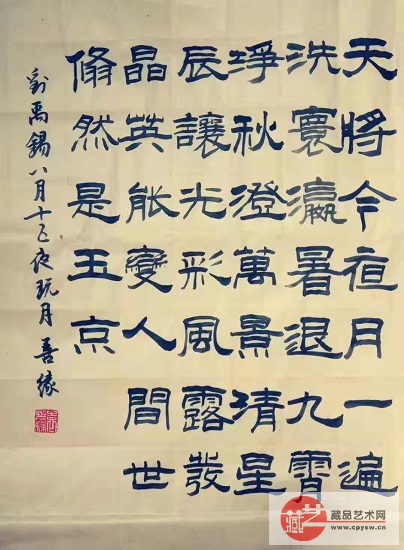 天將今夜月一遍
洗寰瀛暑退九霄
淨秋澄萬景清星
辰讓光彩風露發
晶英能變人間世
翛然是玉京
劉禹錫八月十五夜玩月善缘
藏艺
藏品艺术网
www.cpysw.cn